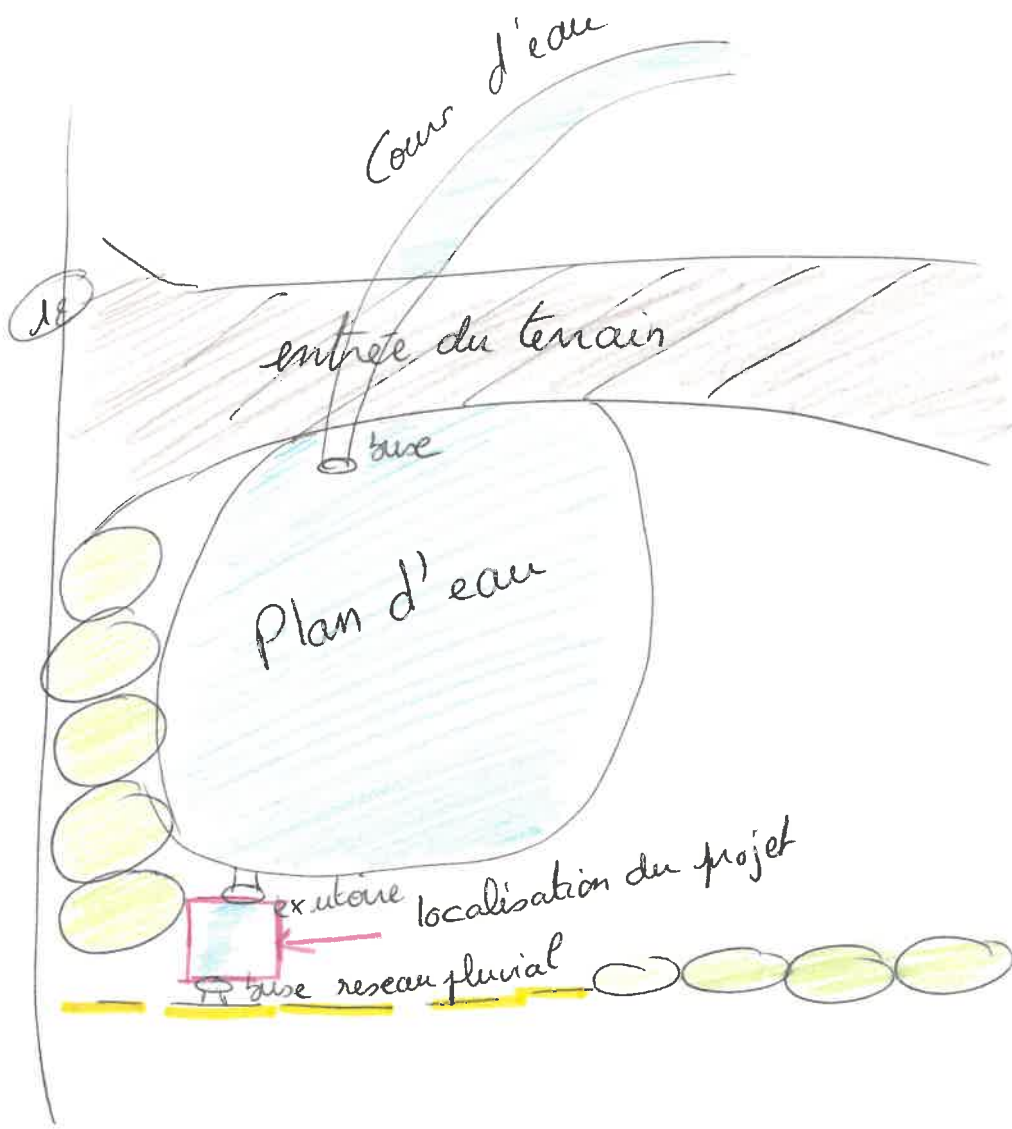 Cours d'eau
entrée du terrain
buse
Plan d'eau
exutoire
localisation du projet
buse reseau pluvial